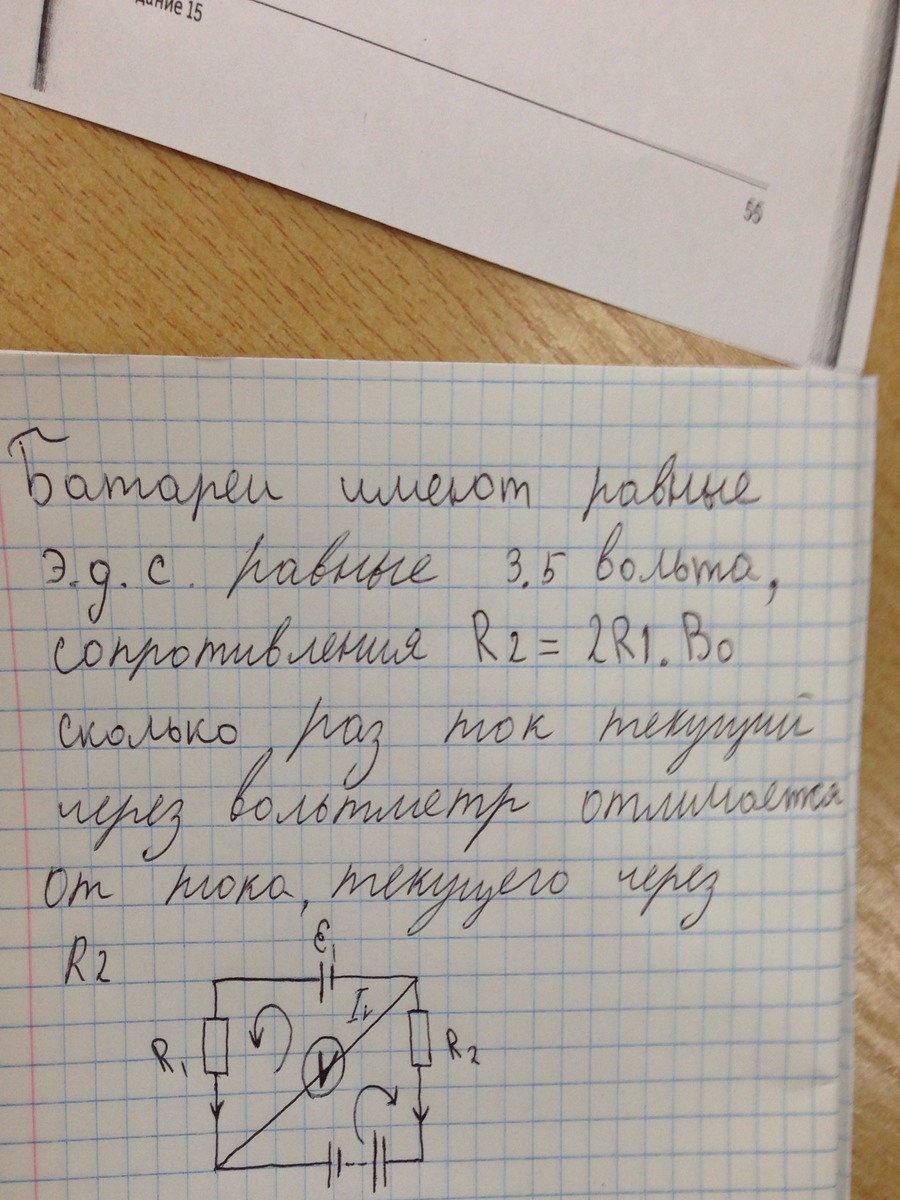 дание 15
55
Батареи имеют равные
э.д.с. равные 3.5 вольта,
сопротивления R2 = 2R1. Во
сколько раз ток текущий
через вольтметр отличается
от тока, текущего через
R2
ε1
Iv
R1
V
R2